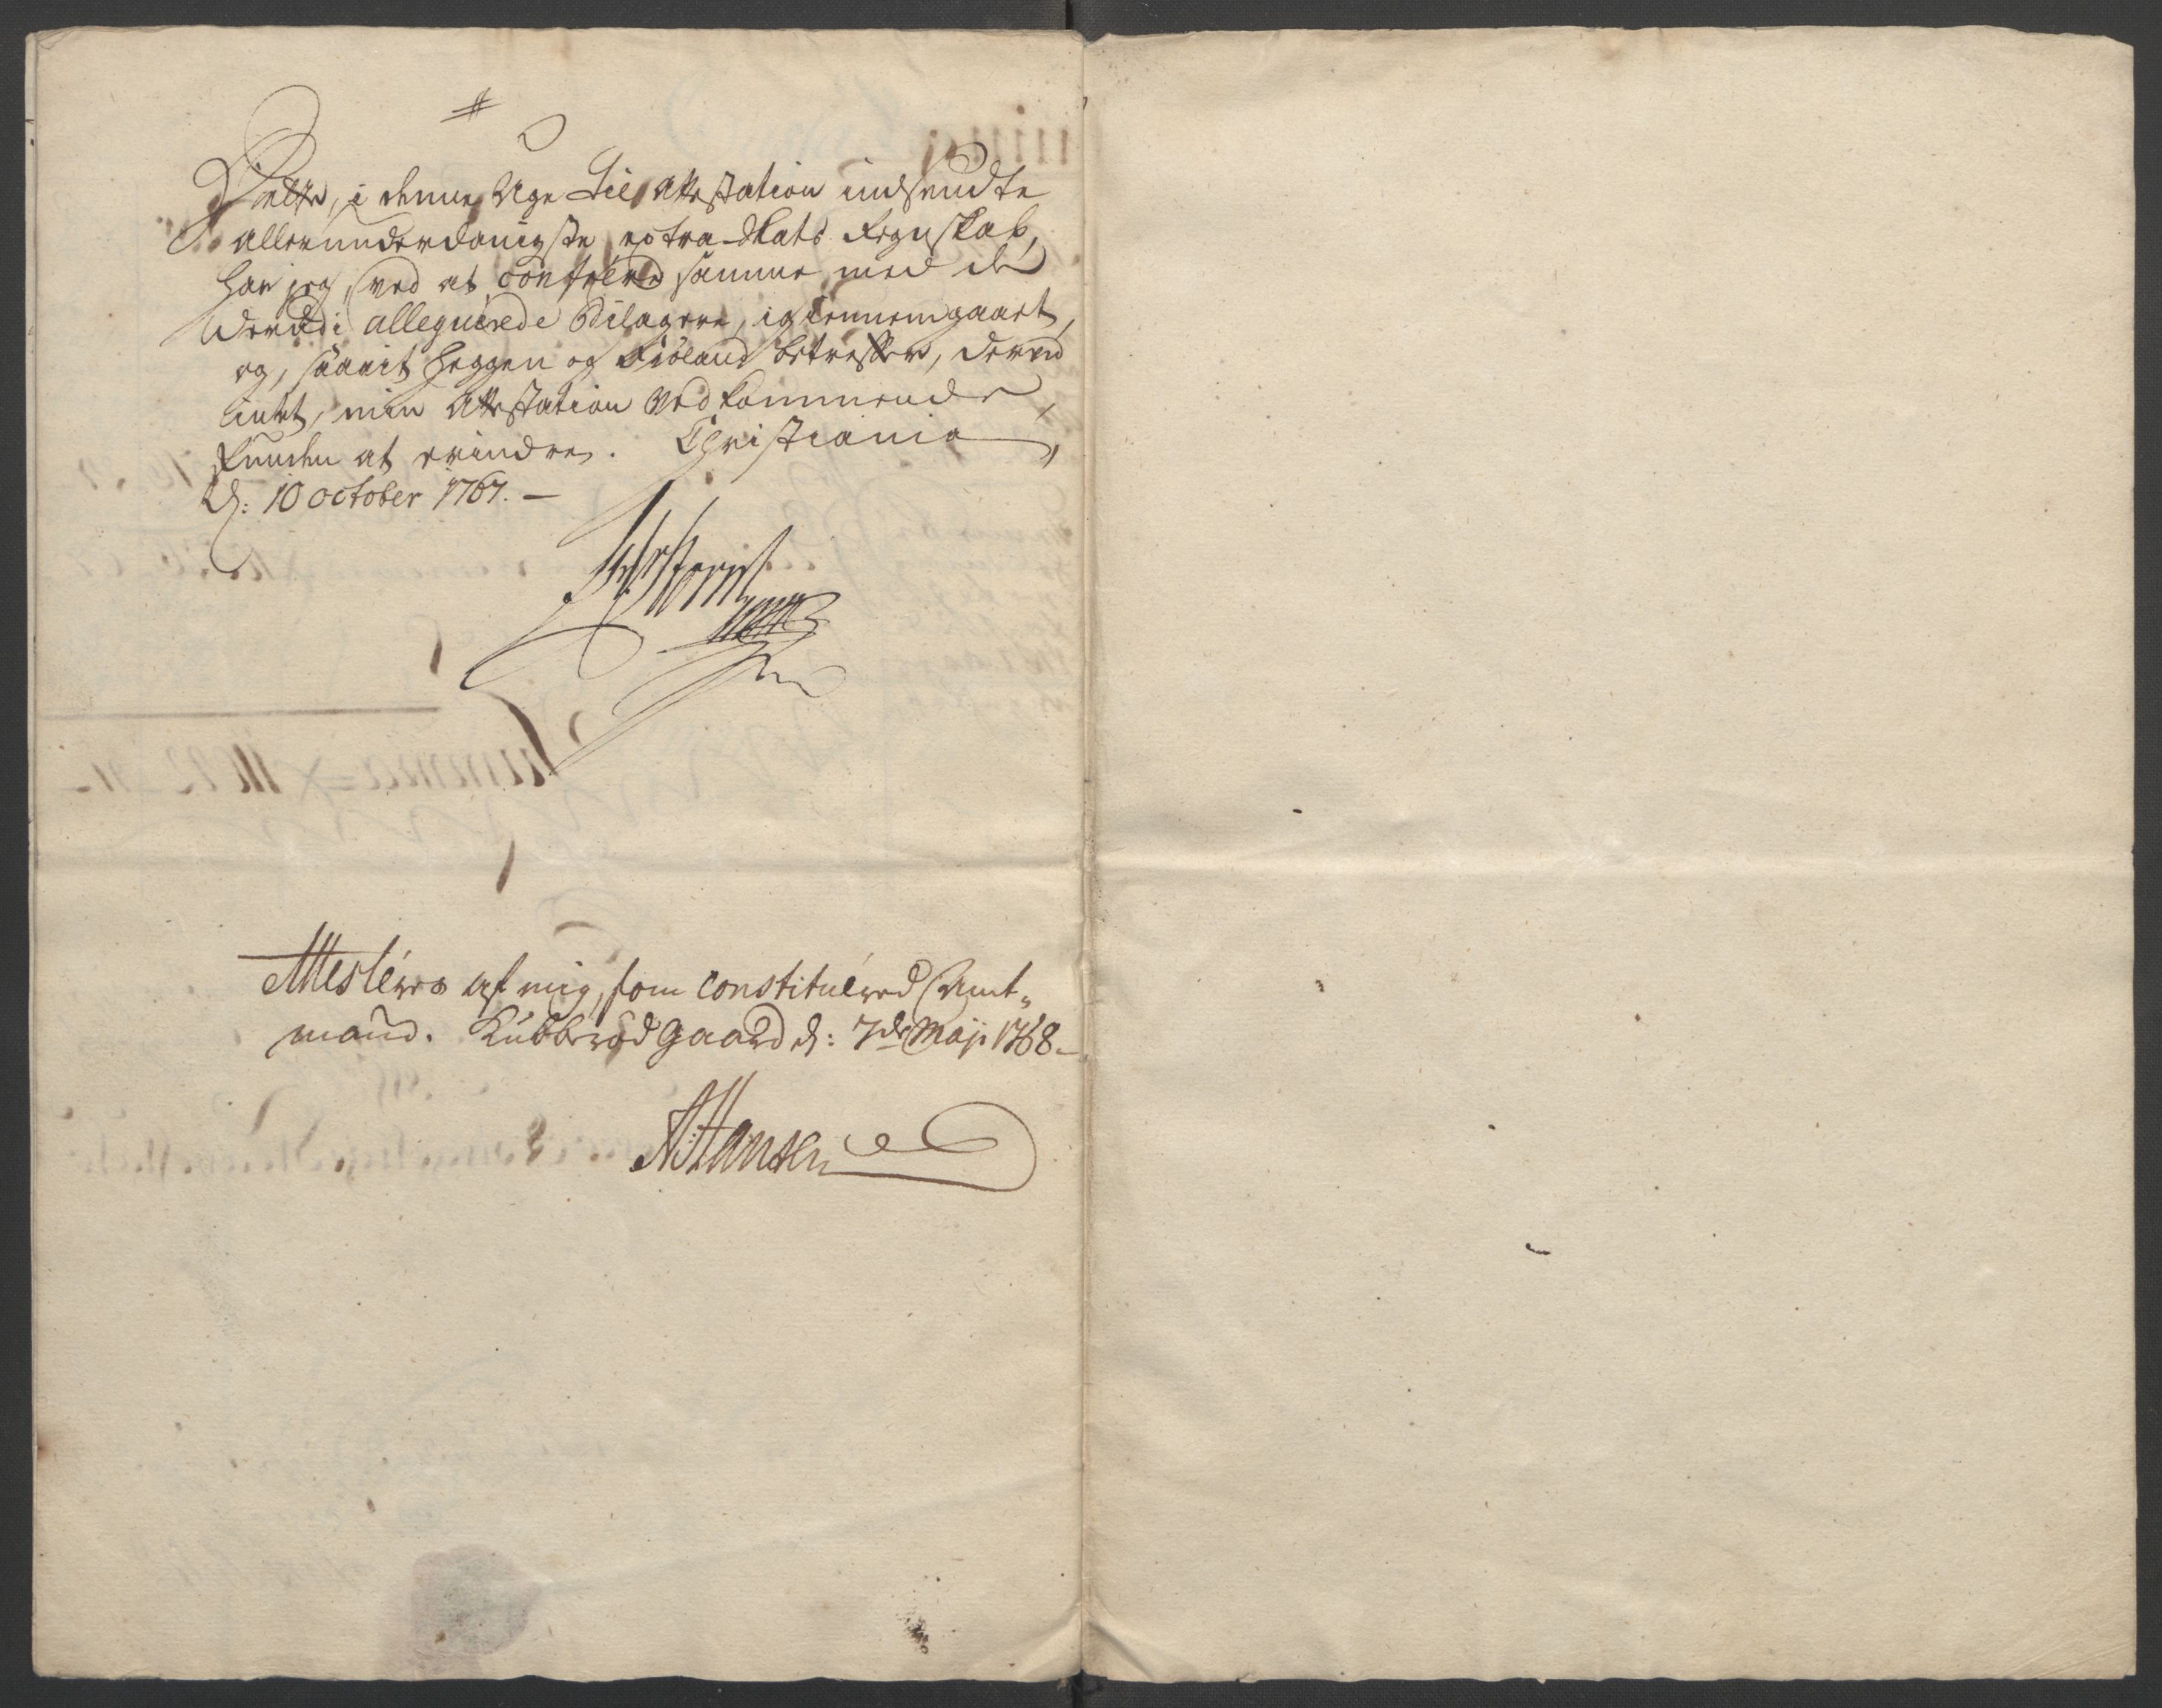 #
Dette, i denne Uge Til Attestation indsendte
allerunderdanigste extra-Skats Regnskab,
har jeg, ved at conferere samme med de
derudi alleguerede Bilagere, igiennemgaaet,
og, saavit Heggen og Frøland betreffer, derved
intet, min Attestation vedkommende,
funden at erindre. Christiania,
d: 10 october 1767. –
Attesteres af mig, som constitueered Amt„
mand. Kubberød gaard d: 7de Maji 1768 –
A: Hansen